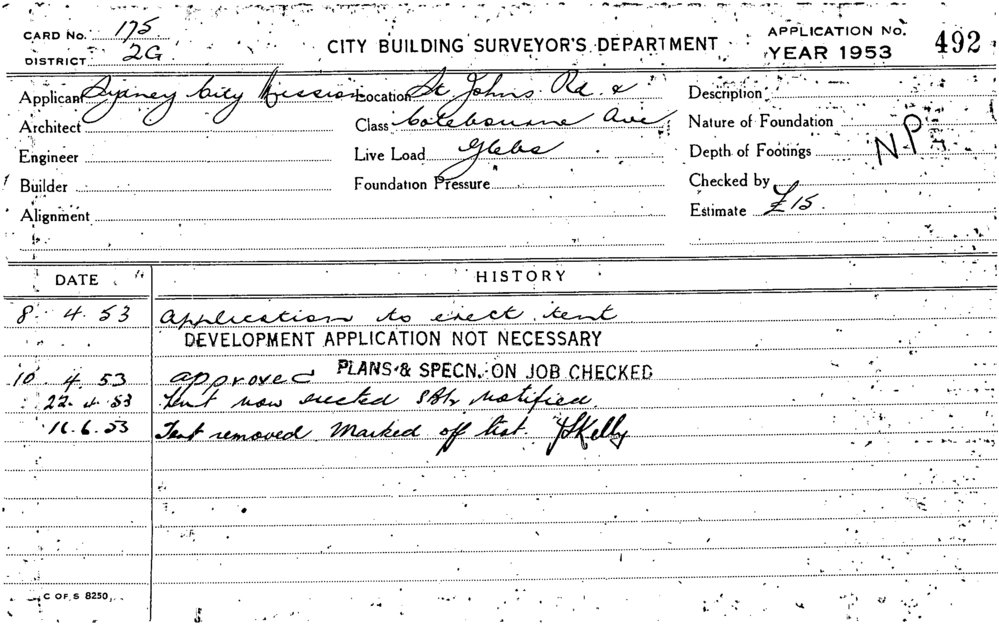 CARD No. 175
DISTRICT 2G
CITY BUILDING SURVEYOR'S DEPARTMENT
APPLICATION No.
YEAR 1953
492
Applicant Sydney City Mission Location St Johns Rd &
Description
Architect
Class Colebourne Ave
Nature of Foundation
NP
Engineer
Live Load Glebe
Depth of Footings
Builder
Foundation Pressure
Checked by
Alignment
Estimate £15
DATE HISTORY
8. 4. 53 Application to erect tent
DEVELOPMENT APPLICATION NOT NECESSARY
10. 4. 53 approved PLANS & SPECN. ON JOB CHECKED
22. 4. 53 Tent now erected notified
16.6.53 Tent removed Marked off list. Kelly
C OF S 8250